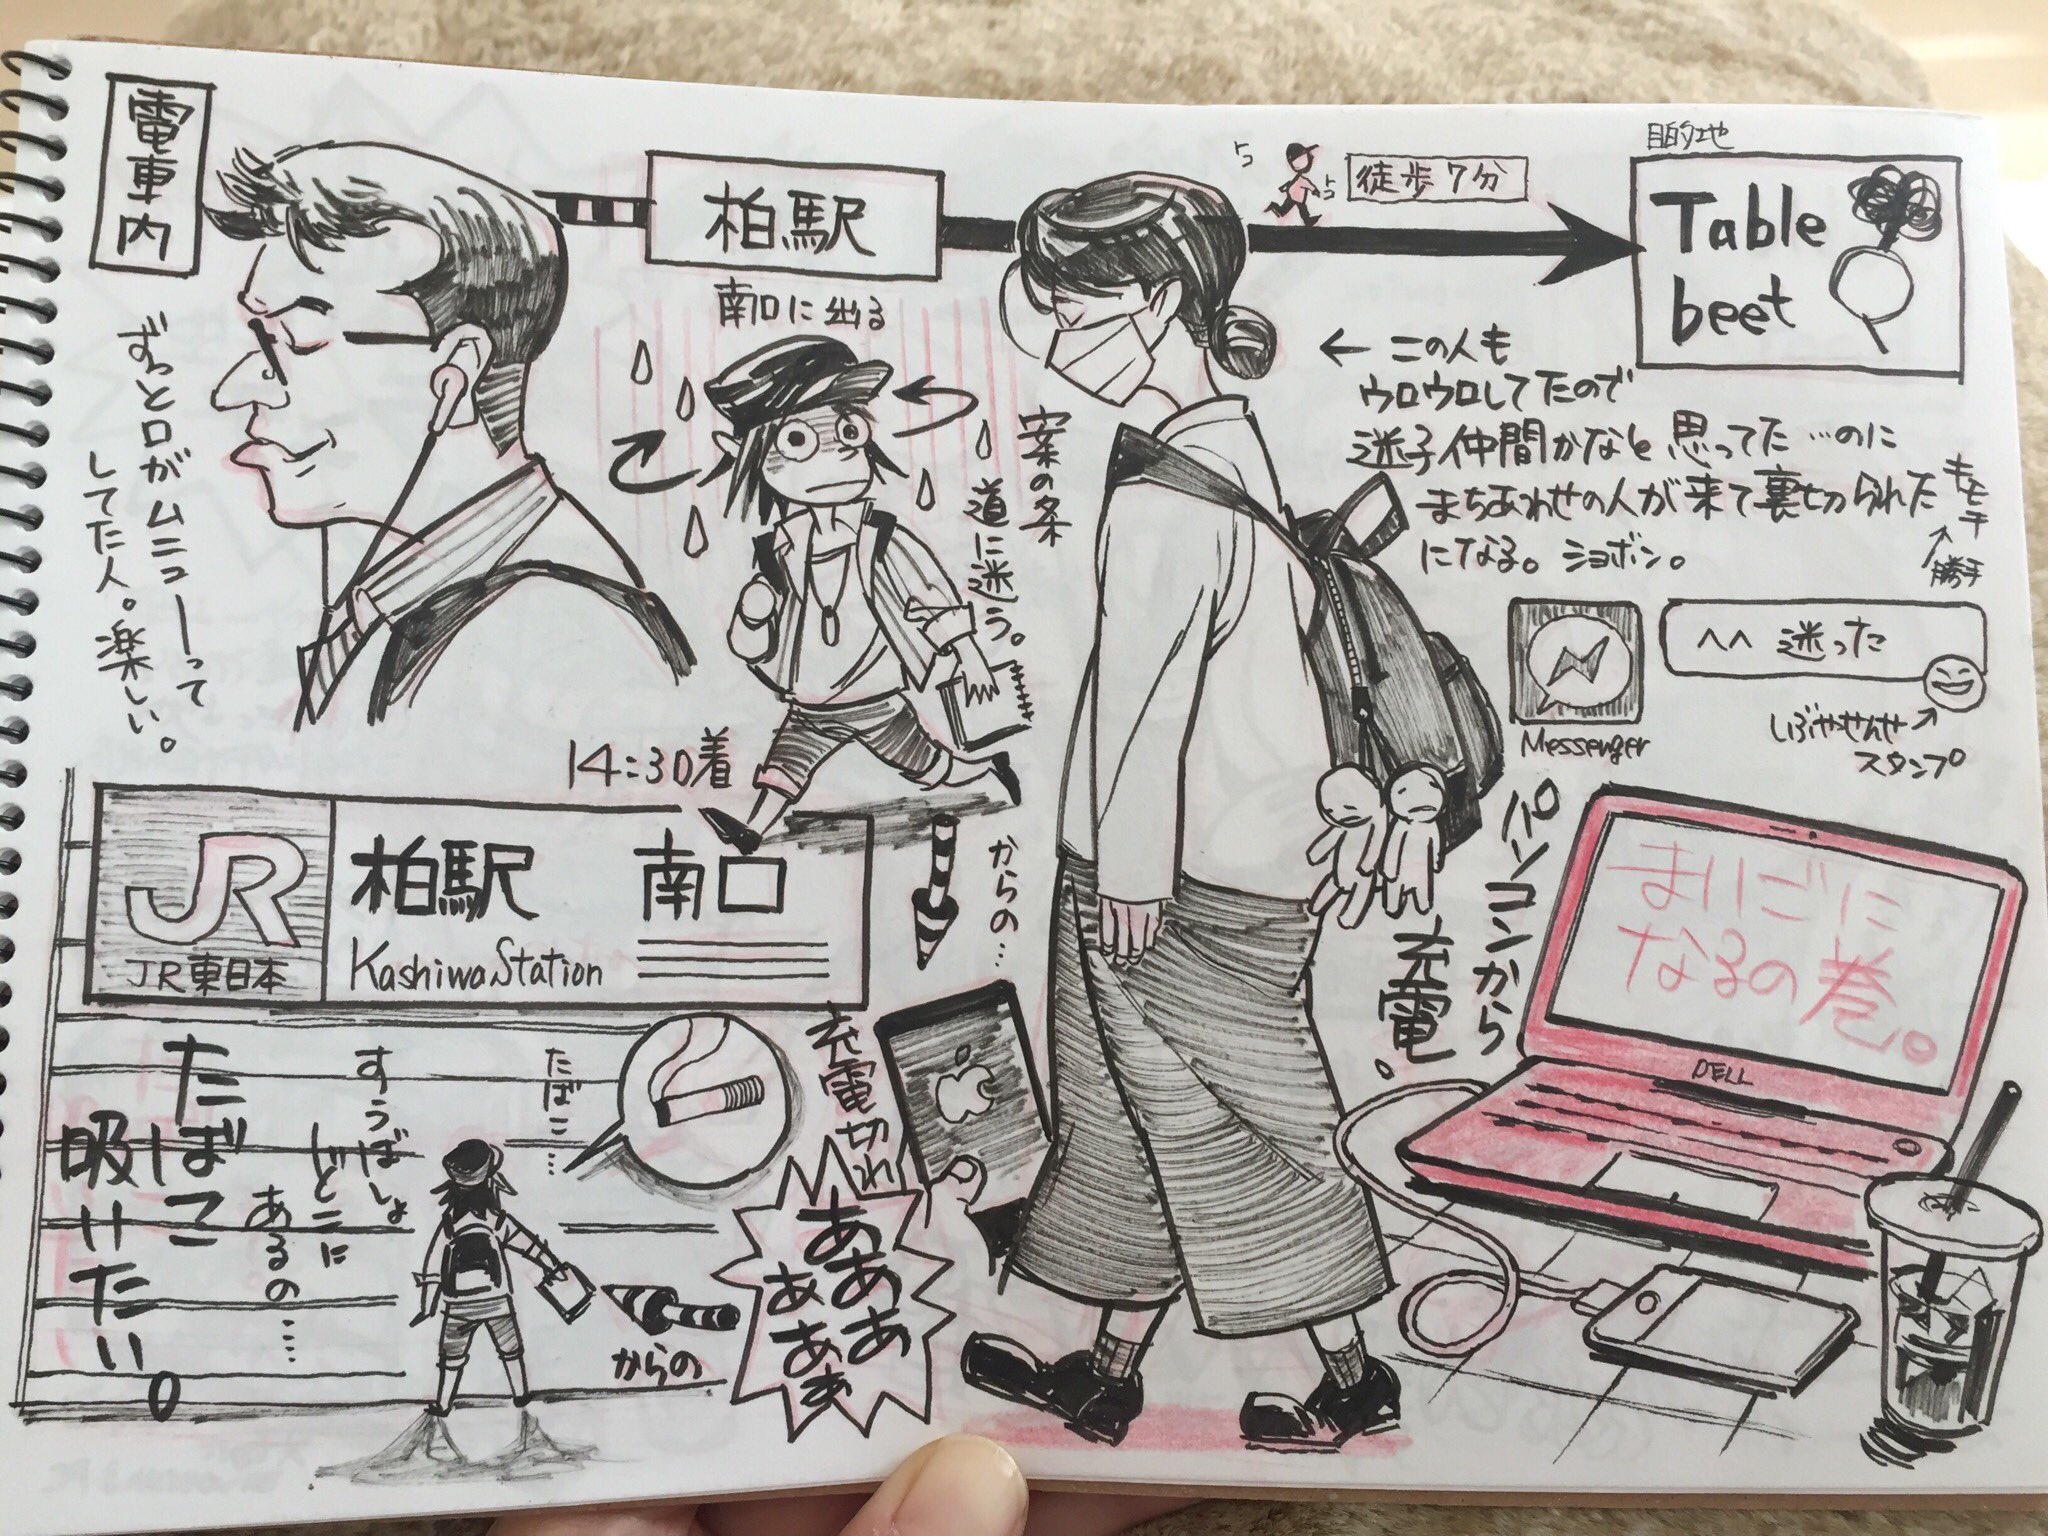 電車内
ずっと口がムニューって
してた人。楽しい。
柏駅
南口に出る
徒歩7分
目的地
Table
beet
案の条
道に迷う。
← この人も
ウロウロしてたので
迷子仲間かなと思ってた…のに
まちあわせの人が来て裏切られた
キモチ
になる。ショボン。
勝手
Messenger
^^ 迷った
しぶやせんせ
スタンプ
14:30着
JR
JR東日本
柏駅 南口
Kashiwa Station
からの…
たばこ…
すうばしょ
どこに
あるの……
たばこ
吸いたい。
からの
充電切れ
ああ
ああ
ああぁ
パソコンから
充電。
まいごに
なるの巻。
DELL